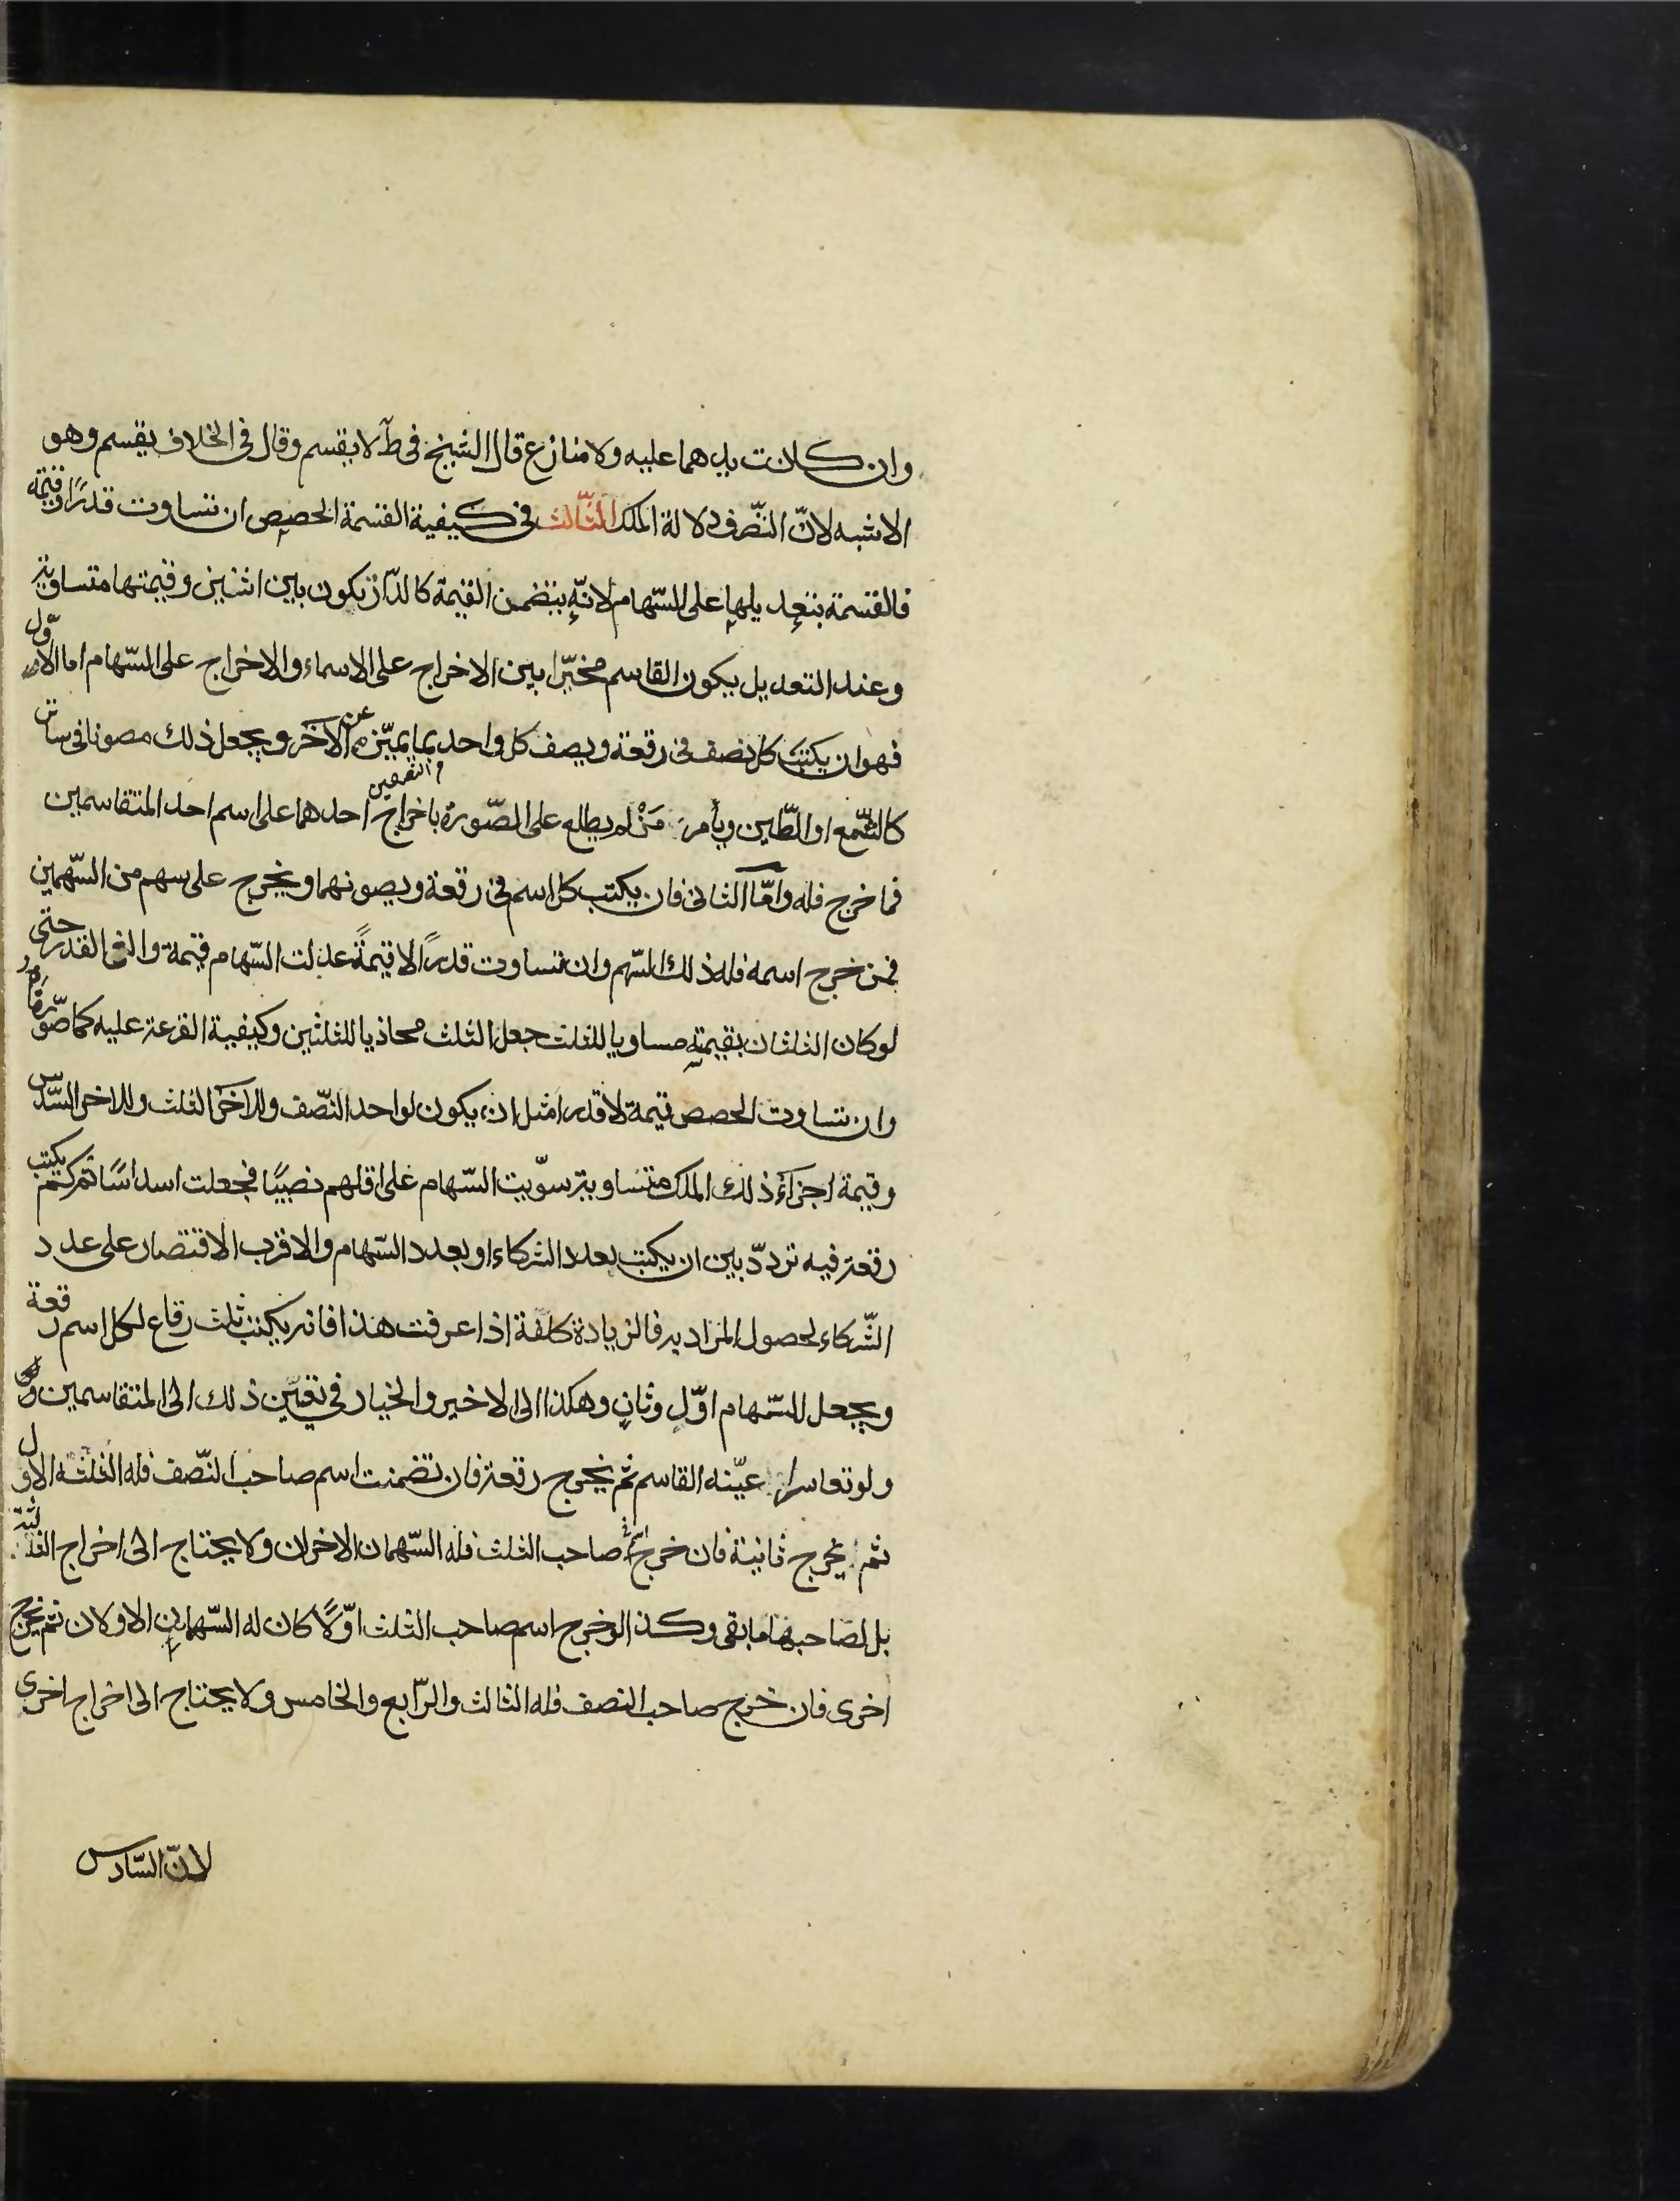 وان كانت يدهما عليه ولا منازع قال الشيخ فى ط لا يقسم وقال فى الخلاف يقسم وهو
الاشبه لانّ التصّرف دلالة الملك الثّالث فى كيفية القسمة الحصص ان تساوت قدرًا وقيمة
فالقسمة بتعديلها على السّهام لانّه يتضمن القيمة كالدّار تكون بين اثنين وقيمتها متساوية
وعند التعديل يكون القاسم مخيّرا بين الاخراج على الاسماء والاخراج على السّهام اما الاوّل
فهو ان يكتب كل نصف فى رقعة ويصف كل واحد بما يميّزه عن الاخر ويجعل ذلك مصونا فى ساتر
كالشّمع او الطّين ويأمر مَنْ لم يطلع على الصّورة باخراج احدهما على اسم احد المتقاسمين
فما خرج فله وامّا الثانى فان يكتب كل اسم فى رقعة ويصونهما ويخرج على سهم من السّهمين
فمن خرج اسمه فله ذلك السّهم وان تساوت قدرًا لا قيمةً عدلت السّهام قيمة والغى القدر حتى
لو كان الثلثان بقيمته مساويا للثلث جعل الثلث محاذيا للثلثين وكيفية القرعة عليه كما صوّرناه
وان تساوت الحصص قيمة لا قدرا مثل ان يكون لواحد النّصف وللاخر الثلث وللاخر السّدس
وقيمة اجزاء ذلك الملك متساوية سوّيت السّهام على اقلهم نصيبًا فجعلت اسداسًا ثم كم يكتب
رقعة فيه تردّد بين ان يكتب بعدد الشركاء او بعدد السّهام والاقرب الاقتصار على عدد
الشّركاء لحصول المراد به فالزيادة كلفة اذا عرفت هذا فانه يكتب ثلث رقاع لكل اسم رقعة
ويجعل للسّهام اوّل وثانٍ وهكذا الى الاخير والخيار فى تعيّن ذلك الى المتقاسمين
ولو تعاسرا عيّنه القاسم ثم يخرج رقعة فان تضمنت اسم صاحب النّصف فله الثلثة الاول
ثم يخرج ثانية فان خرج اسم صاحب الثلث فله السّهمان الاخران ولا يحتاج الى اخراج الثالثة
بل لصاحبها ما بقى وكذا لو خرج اسم صاحب الثلث اوّلًا كان له السّهمان الاولان ثم يخرج
اخرى فان خرج صاحب النصف فله الثالث والرّابع والخامس ولا يحتاج الى اخراج اخرى
لانّ السّادس